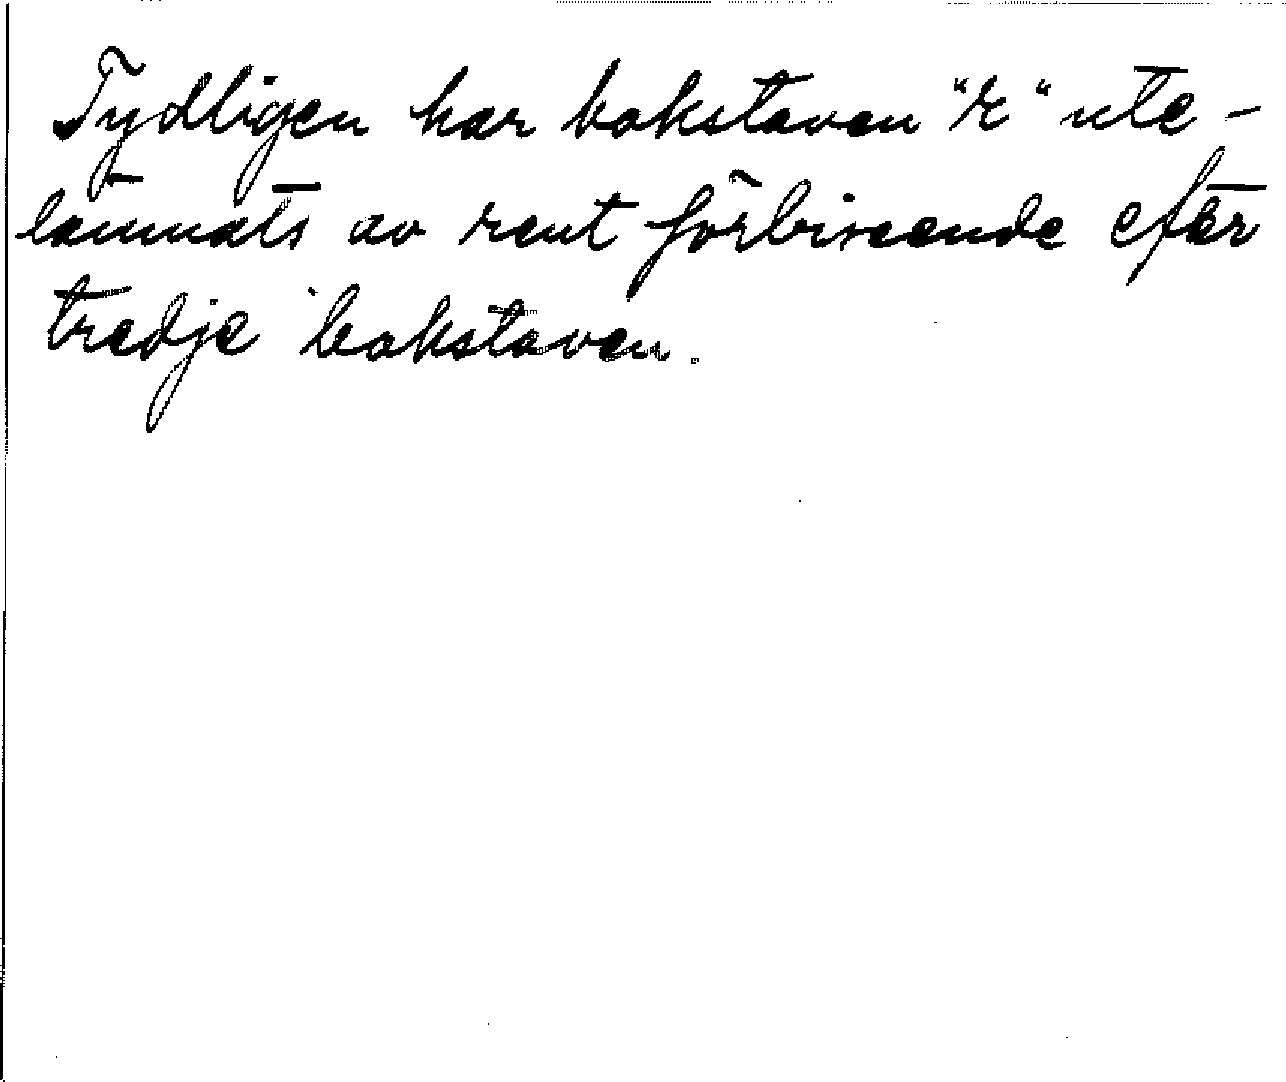 Tydligen har bokstaven "r" ute-
lämnats av rent förbiseende efter
tredje bokstaven.